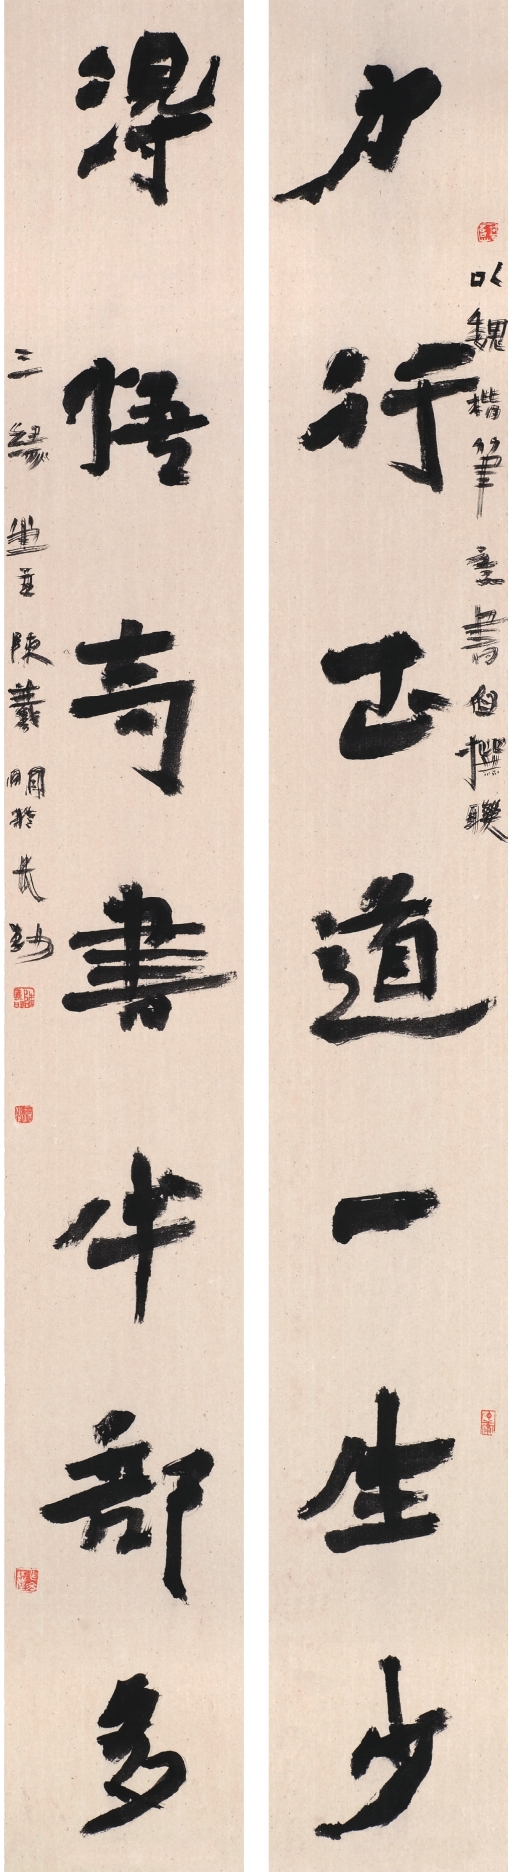 力行正道一生少
以魏楷筆意書自撰聯
得悟奇書半部多
三緣堂主陳羲明於長沙